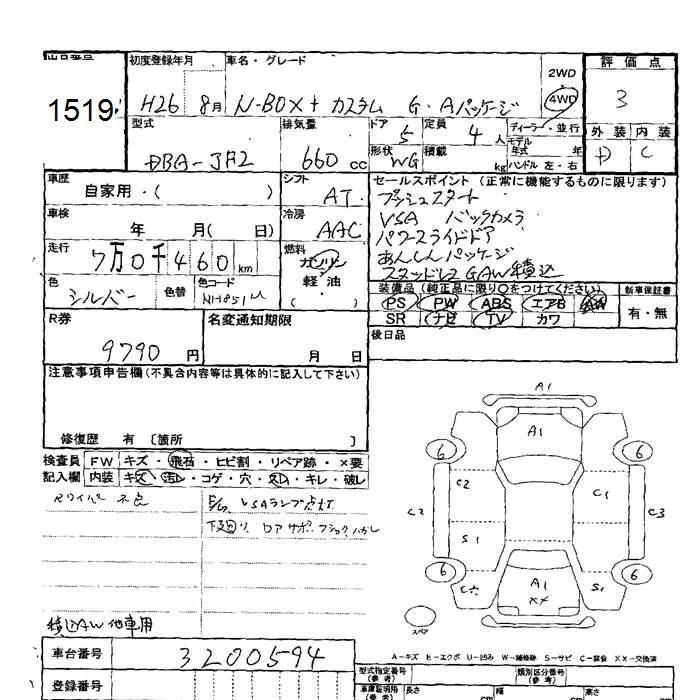 初度登録年月 車名・グレード 2WD 評価点
1519 H26 8月 N-BOX+ カスタム G・Aパッケージ 4WD 3
型式 排気量 ドア 5 定員 4人 ディーラー・並行 外装 内装
DBA-JF2 660cc 形状 WG 積載 kg モデル年式 年 D C
ハンドル 左・右
車歴 シフト セールスポイント (正常に機能するものに限ります)
自家用・( ) AT プッシュスタート
車検 冷房 VSA バックカメラ
年 月( 日) AAC パワースライドドア
走行 燃料 あんしんパッケージ
7万0千460km ガソリン スタッドレスAW積込
色 色替 色コード 軽油 装備品(純正品に限り〇をつけてください) 新車保証書
シルバー NH851M ( ) PS PW ABS エアB AW 有・無
R券 名変通知期限 SR ナビ TV カワ
9790円 月 日 後日品
注意事項申告欄(不具合内容等は具体的に記入して下さい)
修復歴 有 〔箇所 〕
検査員 FW キズ・飛石・ヒビ割・リペア跡・×要
記入欄 内装 キズ・汚レ・コゲ・穴・スレ・キレ・破レ
Rワイパー 不良 E/G、VSAランプ点灯
下回り
積込AW 他車用
車台番号 3200594
登録番号
A1
A1
6 6
C2 C1
C2 C3
S1
6 6
A1 S1
XX
スペア
A-キズ E-エクボ U-凹み W-補修跡 S-サビ C-腐食 XX-交換済
型式指定番号(参考) 類別区分番号(参考)
車庫証明用(参考) 長さ cm 幅 cm 高さ cm